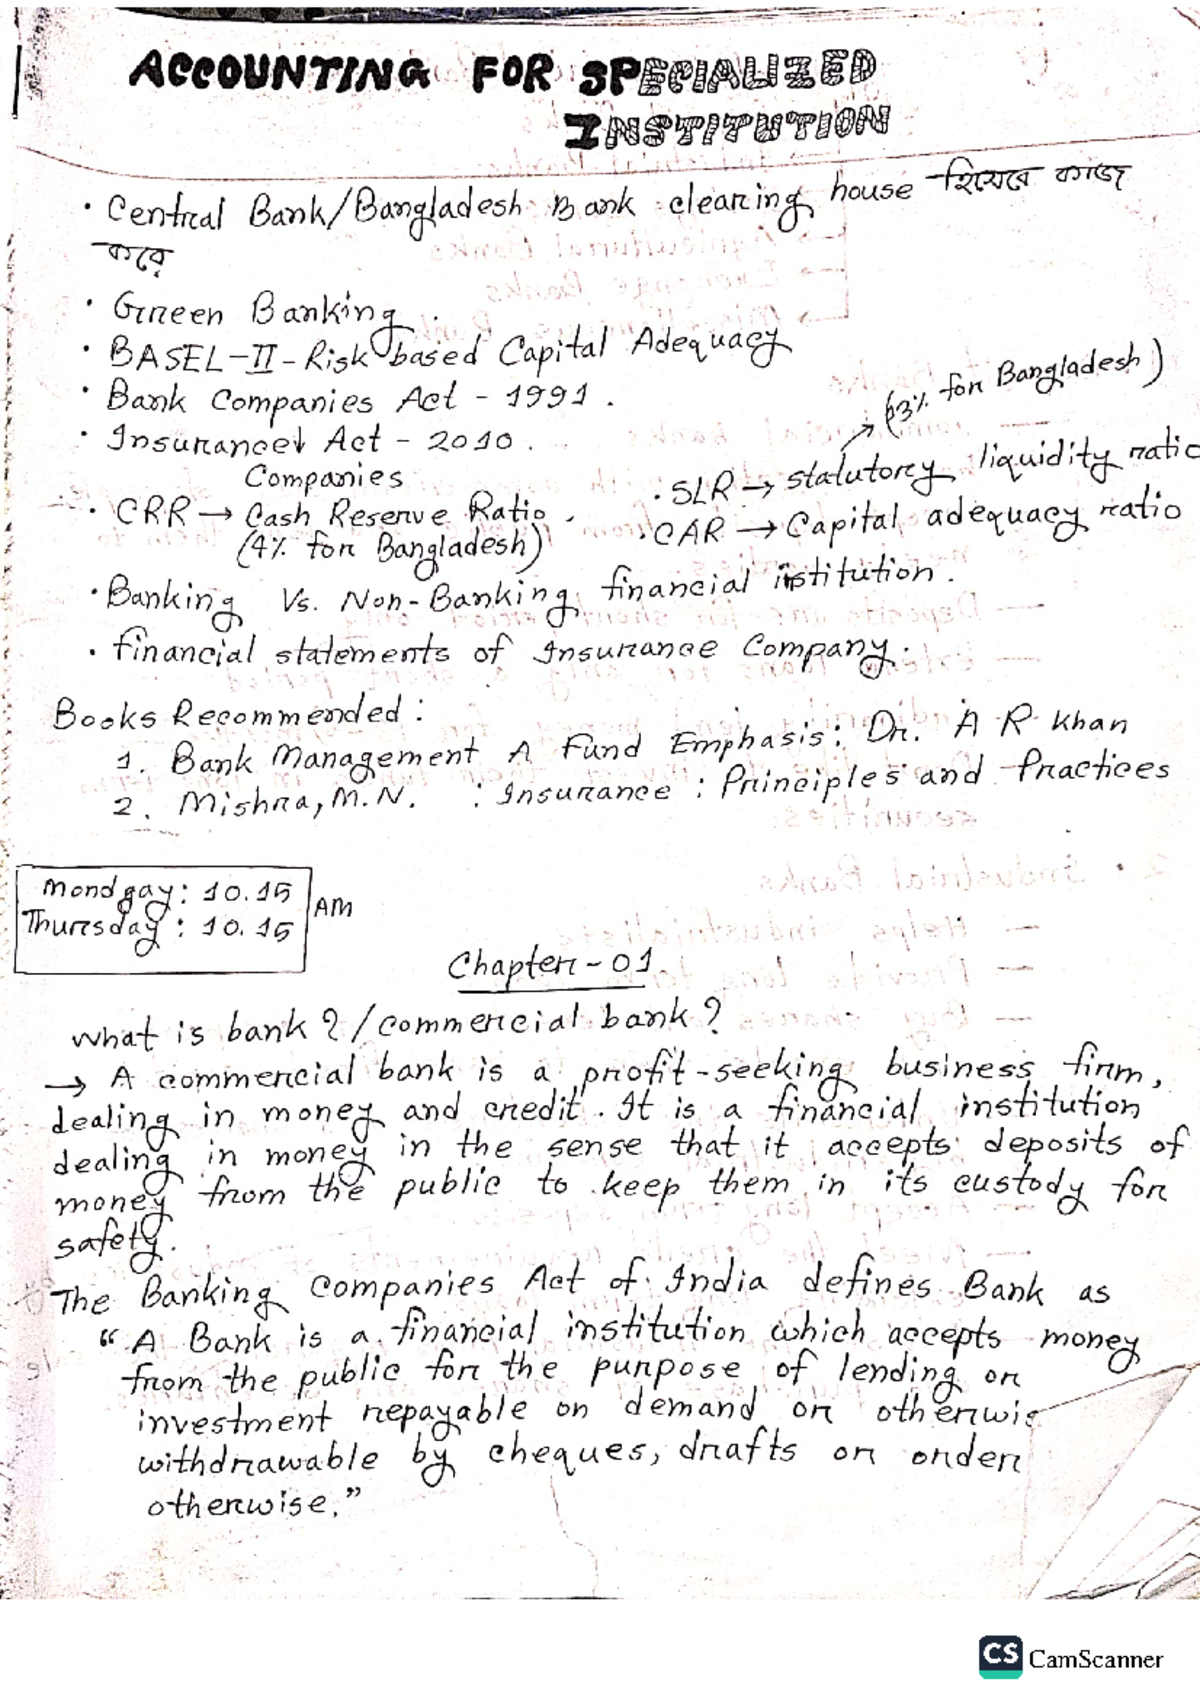 ACCOUNTING FOR SPECIALIZED
INSTITUTION
• Central Bank/Bangladesh Bank clearing house হিসেবে কাজ
করে
• Green Banking.
• BASEL-II-Risk based Capital Adequacy
• Bank Companies Act - 1991.
(13% for Bangladesh)
• Insurance Act - 2010.
Companies
• SLR → statutory liquidity ratio
• CRR → Cash Reserve Ratio.
(4% for Bangladesh)
• CAR → Capital adequacy ratio
• Banking Vs. Non-Banking financial institution.
• financial statements of Insurance Company.
Books Recommended:
1. Bank Management A Fund Emphasis: Dr. A R Khan
2. Mishra, M.N. : Insurance : Principles and Practices
Mondgay: 10.15
Thursday: 10.15
AM
Chapter-01
What is bank?/commercial bank?
→ A commercial bank is a profit-seeking business firm,
dealing in money and credit. It is a financial institution
dealing in money in the sense that it accepts deposits of
money from the public to keep them in its custody for
safety.
The Banking Companies Act of India defines Bank as
"A Bank is a financial institution which accepts money
from the public for the purpose of lending or
investment repayable on demand or otherwis
withdrawable by cheques, drafts or order
otherwise."
CS CamScanner